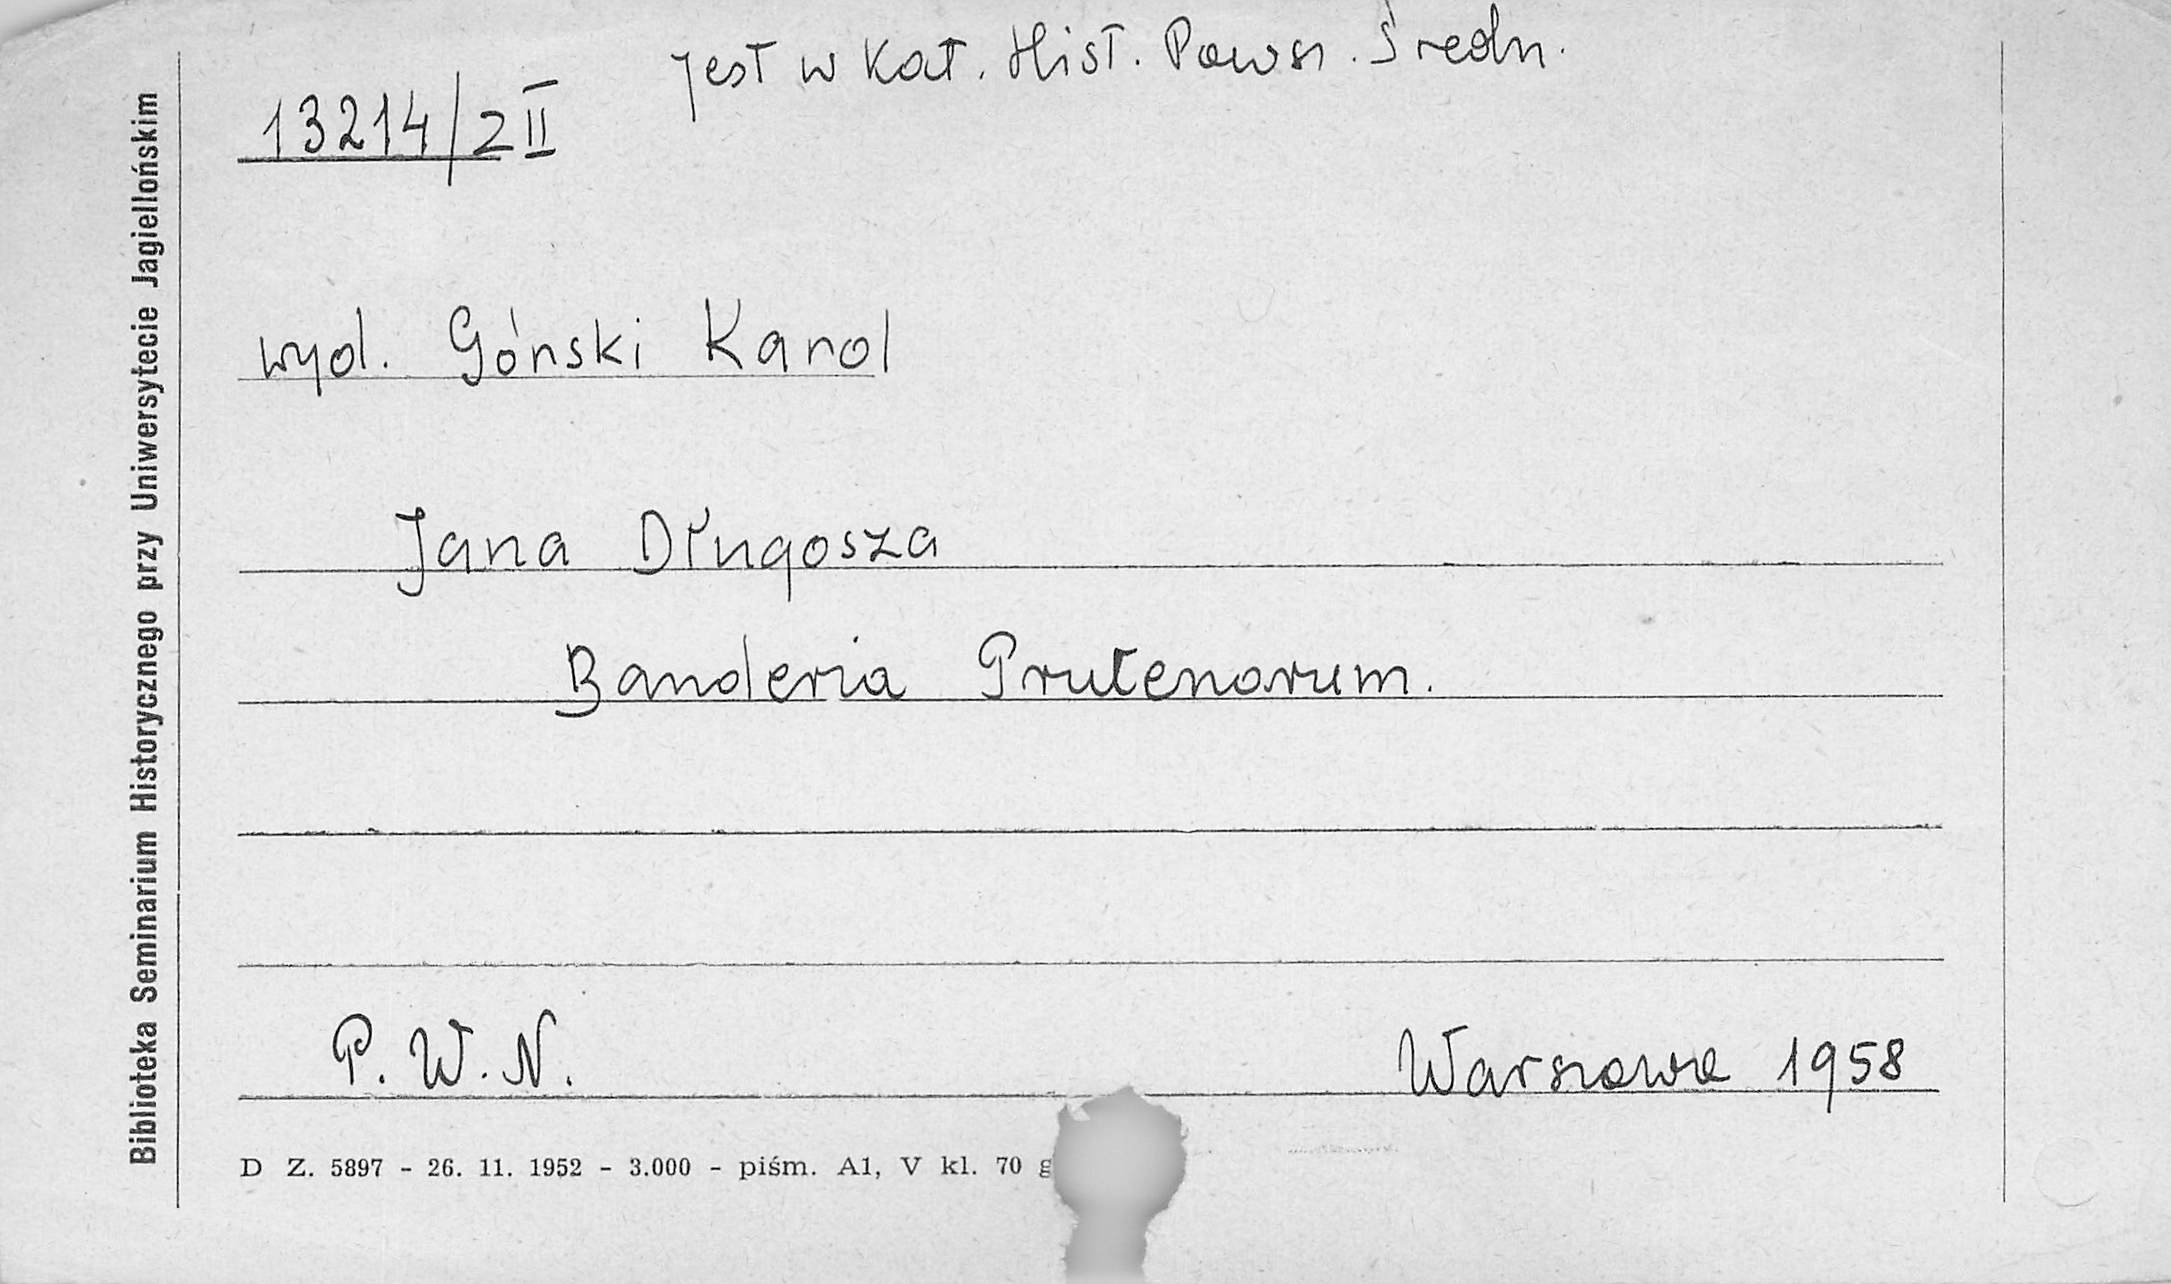 jest w Kat. Hist. Powsz. Średn.
13214/2 II
wyd. Górski Karol
Jana Długosza
Banderia Prutenorum.
P. W. N. Warszawa 1958
D Z. 5897 - 26. 11. 1952 - 3.000 - piśm. A1, V kl. 70 g
Biblioteka Seminarium Historycznego przy Uniwersytecie Jagiellońskim